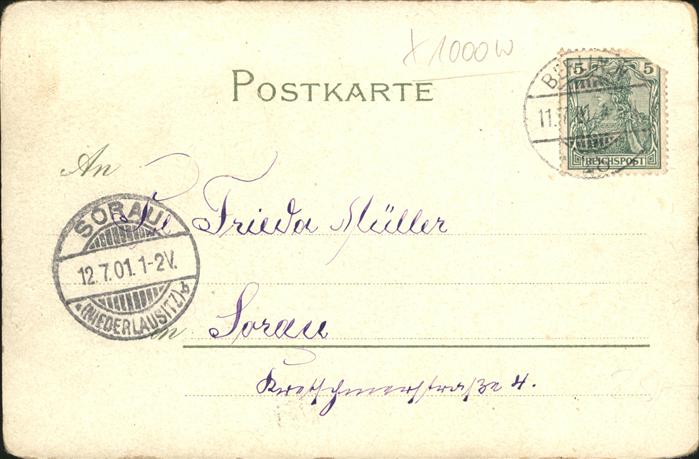 x 1000 W
POSTKARTE
5 5
REICHSPOST
BERLIN N
11.7.01
An
Frl. Frieda Müller
SORAU
12.7.01.1-2V.
*(NIEDERLAUSITZ)*
in Sorau
Kretschmerstraße 4.